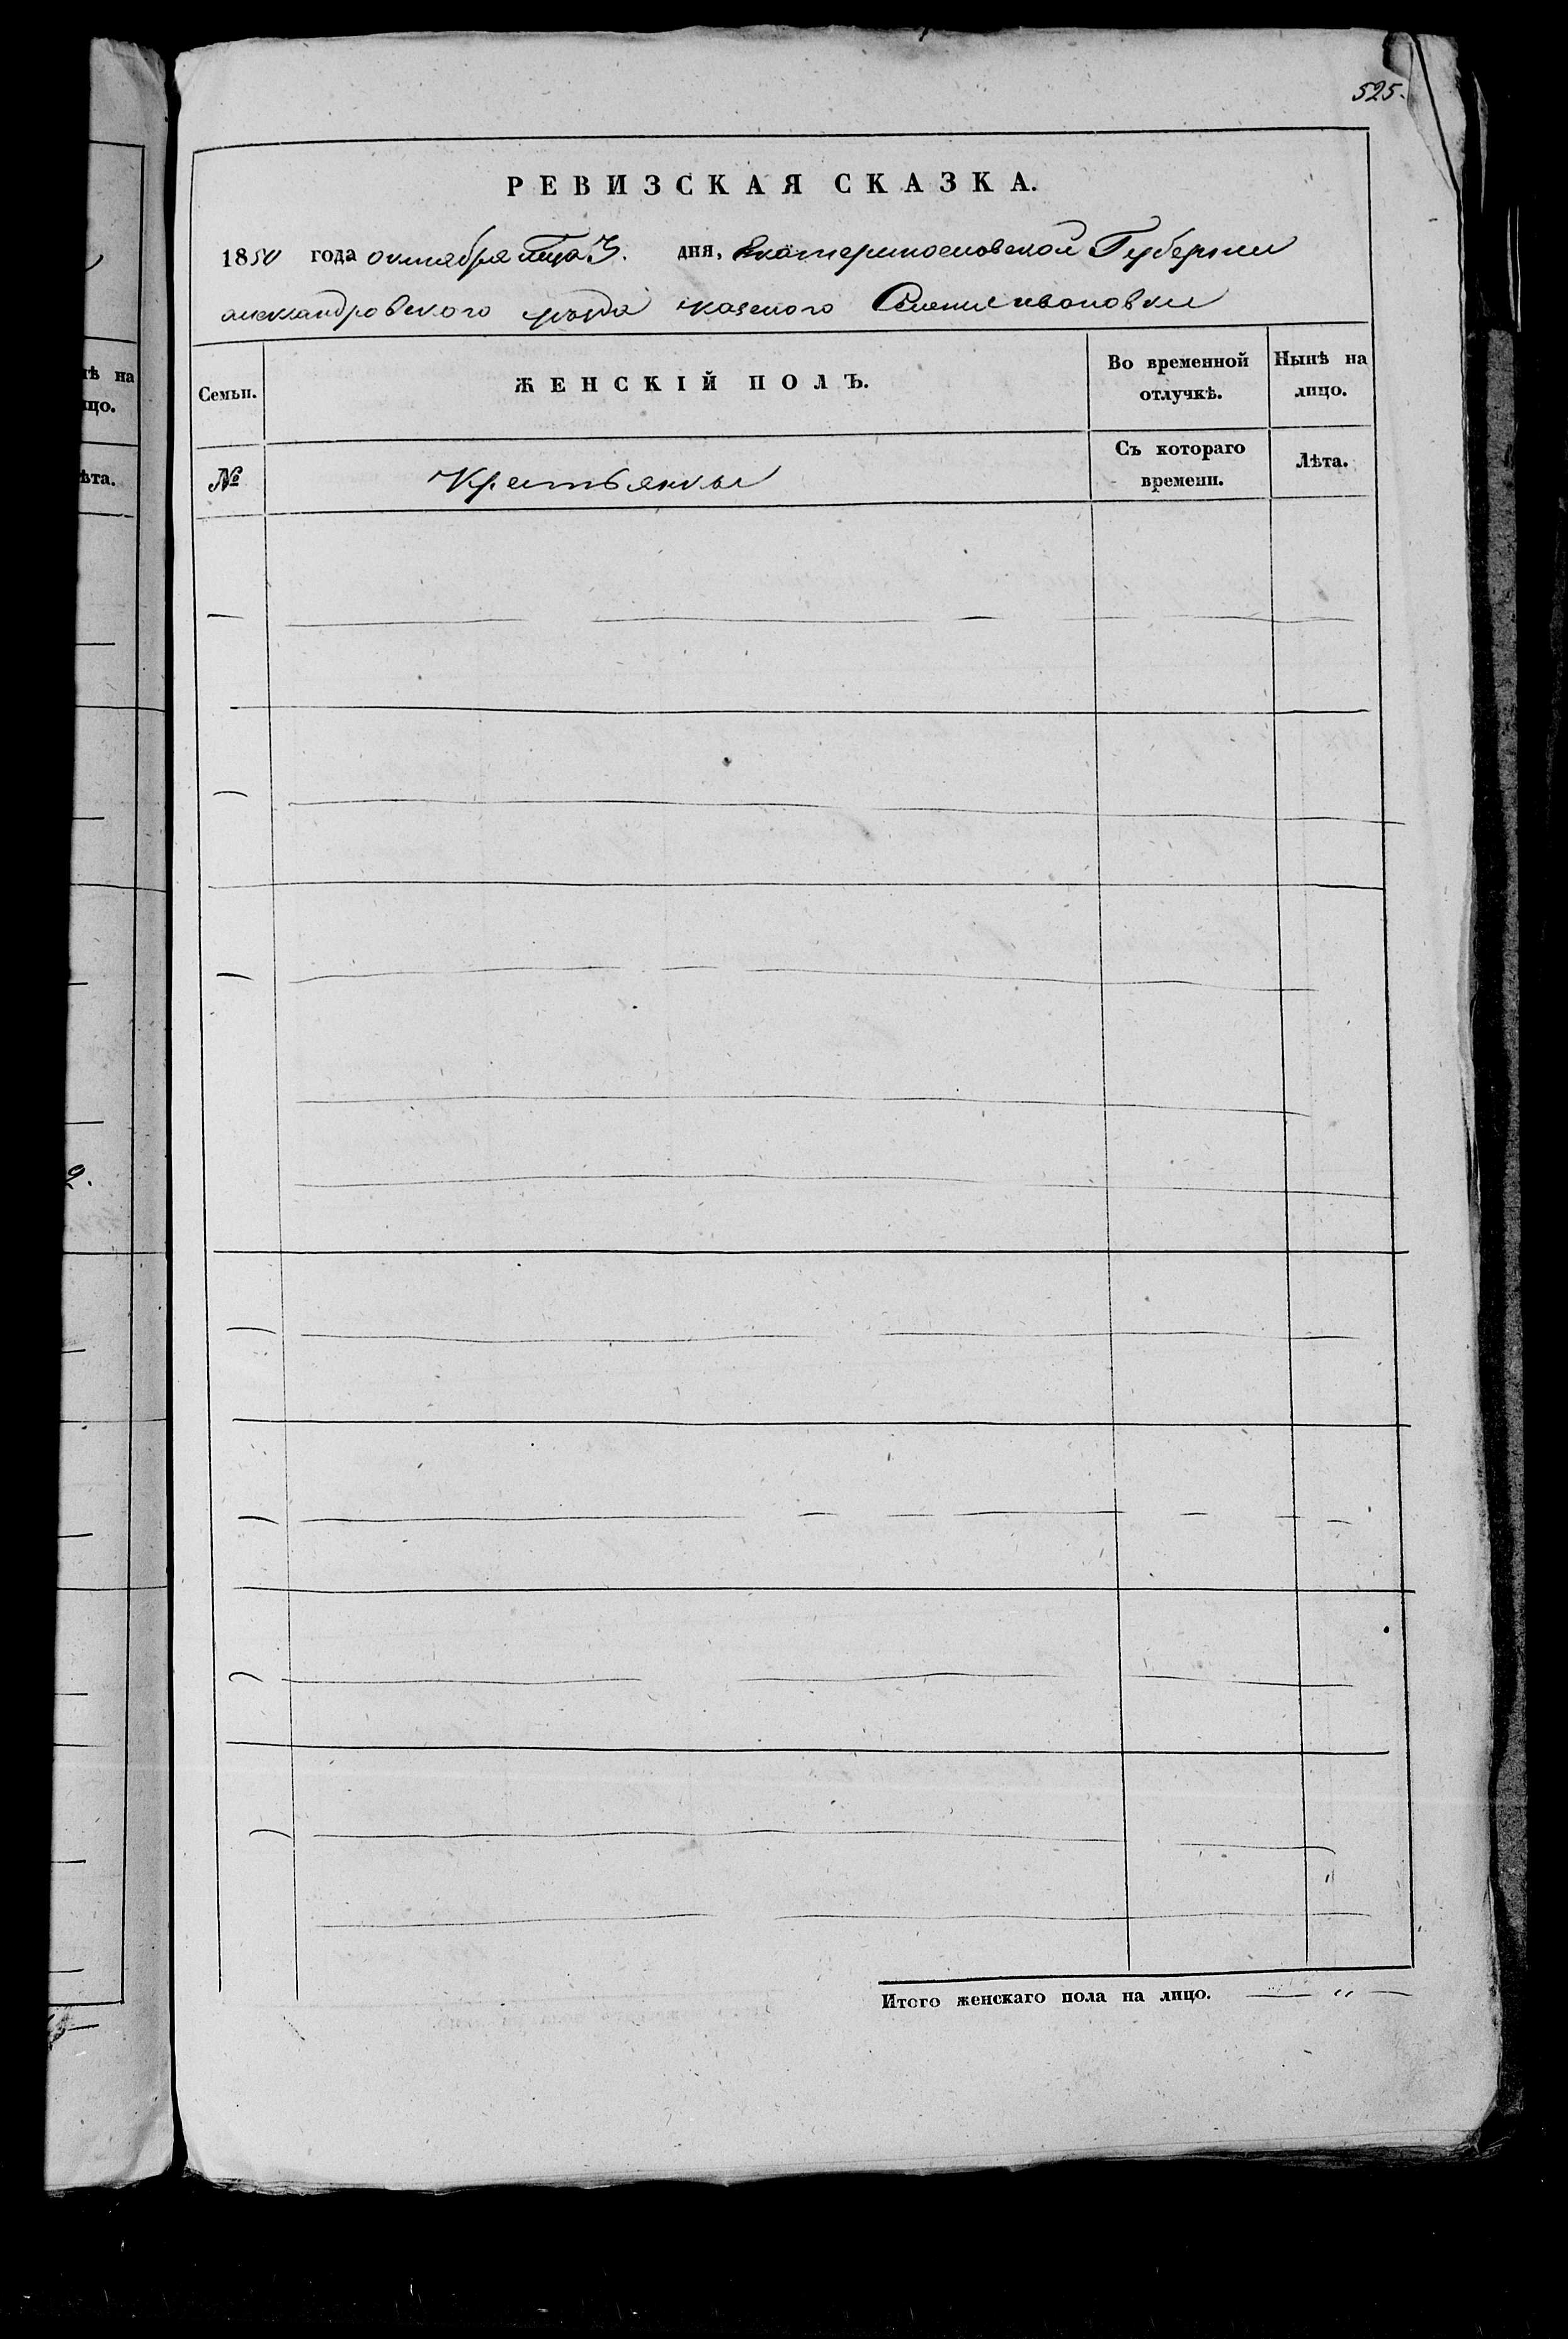 525.
РЕВИЗСКАЯ СКАЗКА.
1850 года октября мца 3. дня, Екатеринославской Губернии
александровского уезда казеного Селения ивановки
Семьи.
ЖЕНСКІЙ ПОЛЪ.
Во временной отлучкѣ.
Нынѣ на лицо.
№
Крестьянки
Съ котораго времени.
Лѣта.
Итого женскаго пола на лицо. — „ —